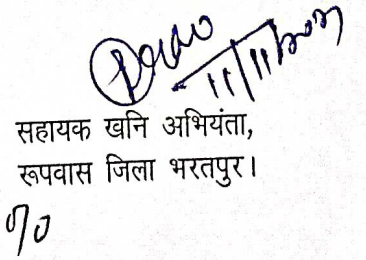 11/11/2021
सहायक खनि अभियंता,
रूपवास जिला भरतपुर।